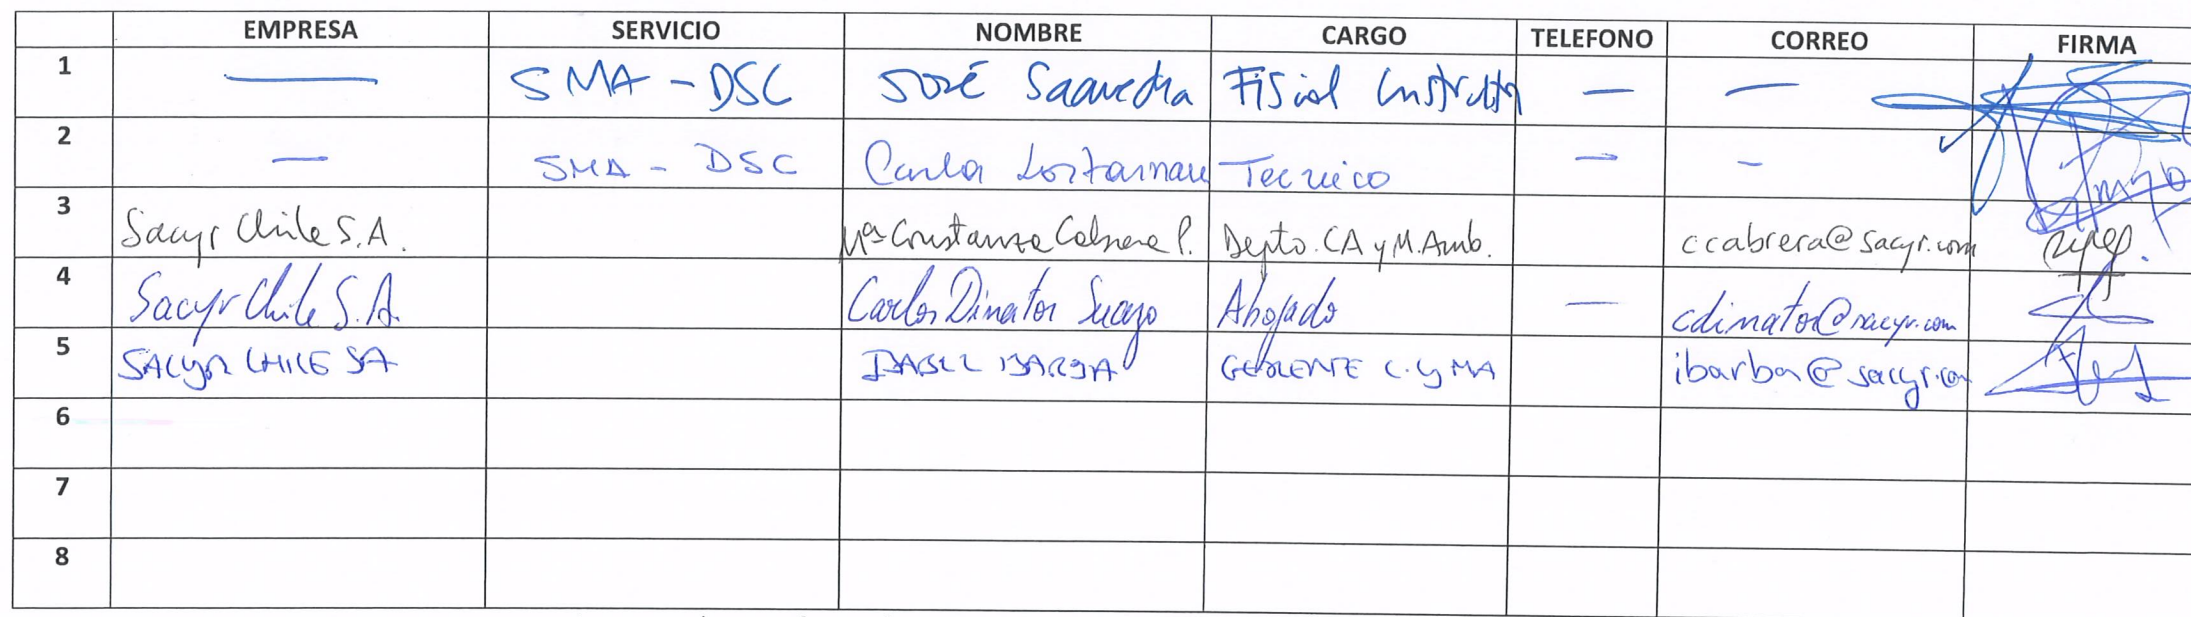 EMPRESA SERVICIO NOMBRE CARGO TELEFONO CORREO FIRMA
1 — SMA - DSC José Saavedra Fiscal Instructor — —
2 — SMA - DSC Carla Tecnico — -
3 Sacyr Chile S.A. Mª Constanza Cabrera P. Depto. CA y M. Amb. ccabrera@sacyr.com
4 Sacyr Chile S.A. Carlos Dinator Suazo Abogado — cdinator@sacyr.com
5 SACYR CHILE SA ISABEL BARBA GERENTE C. y MA ibarba@sacyr.com
6
7
8